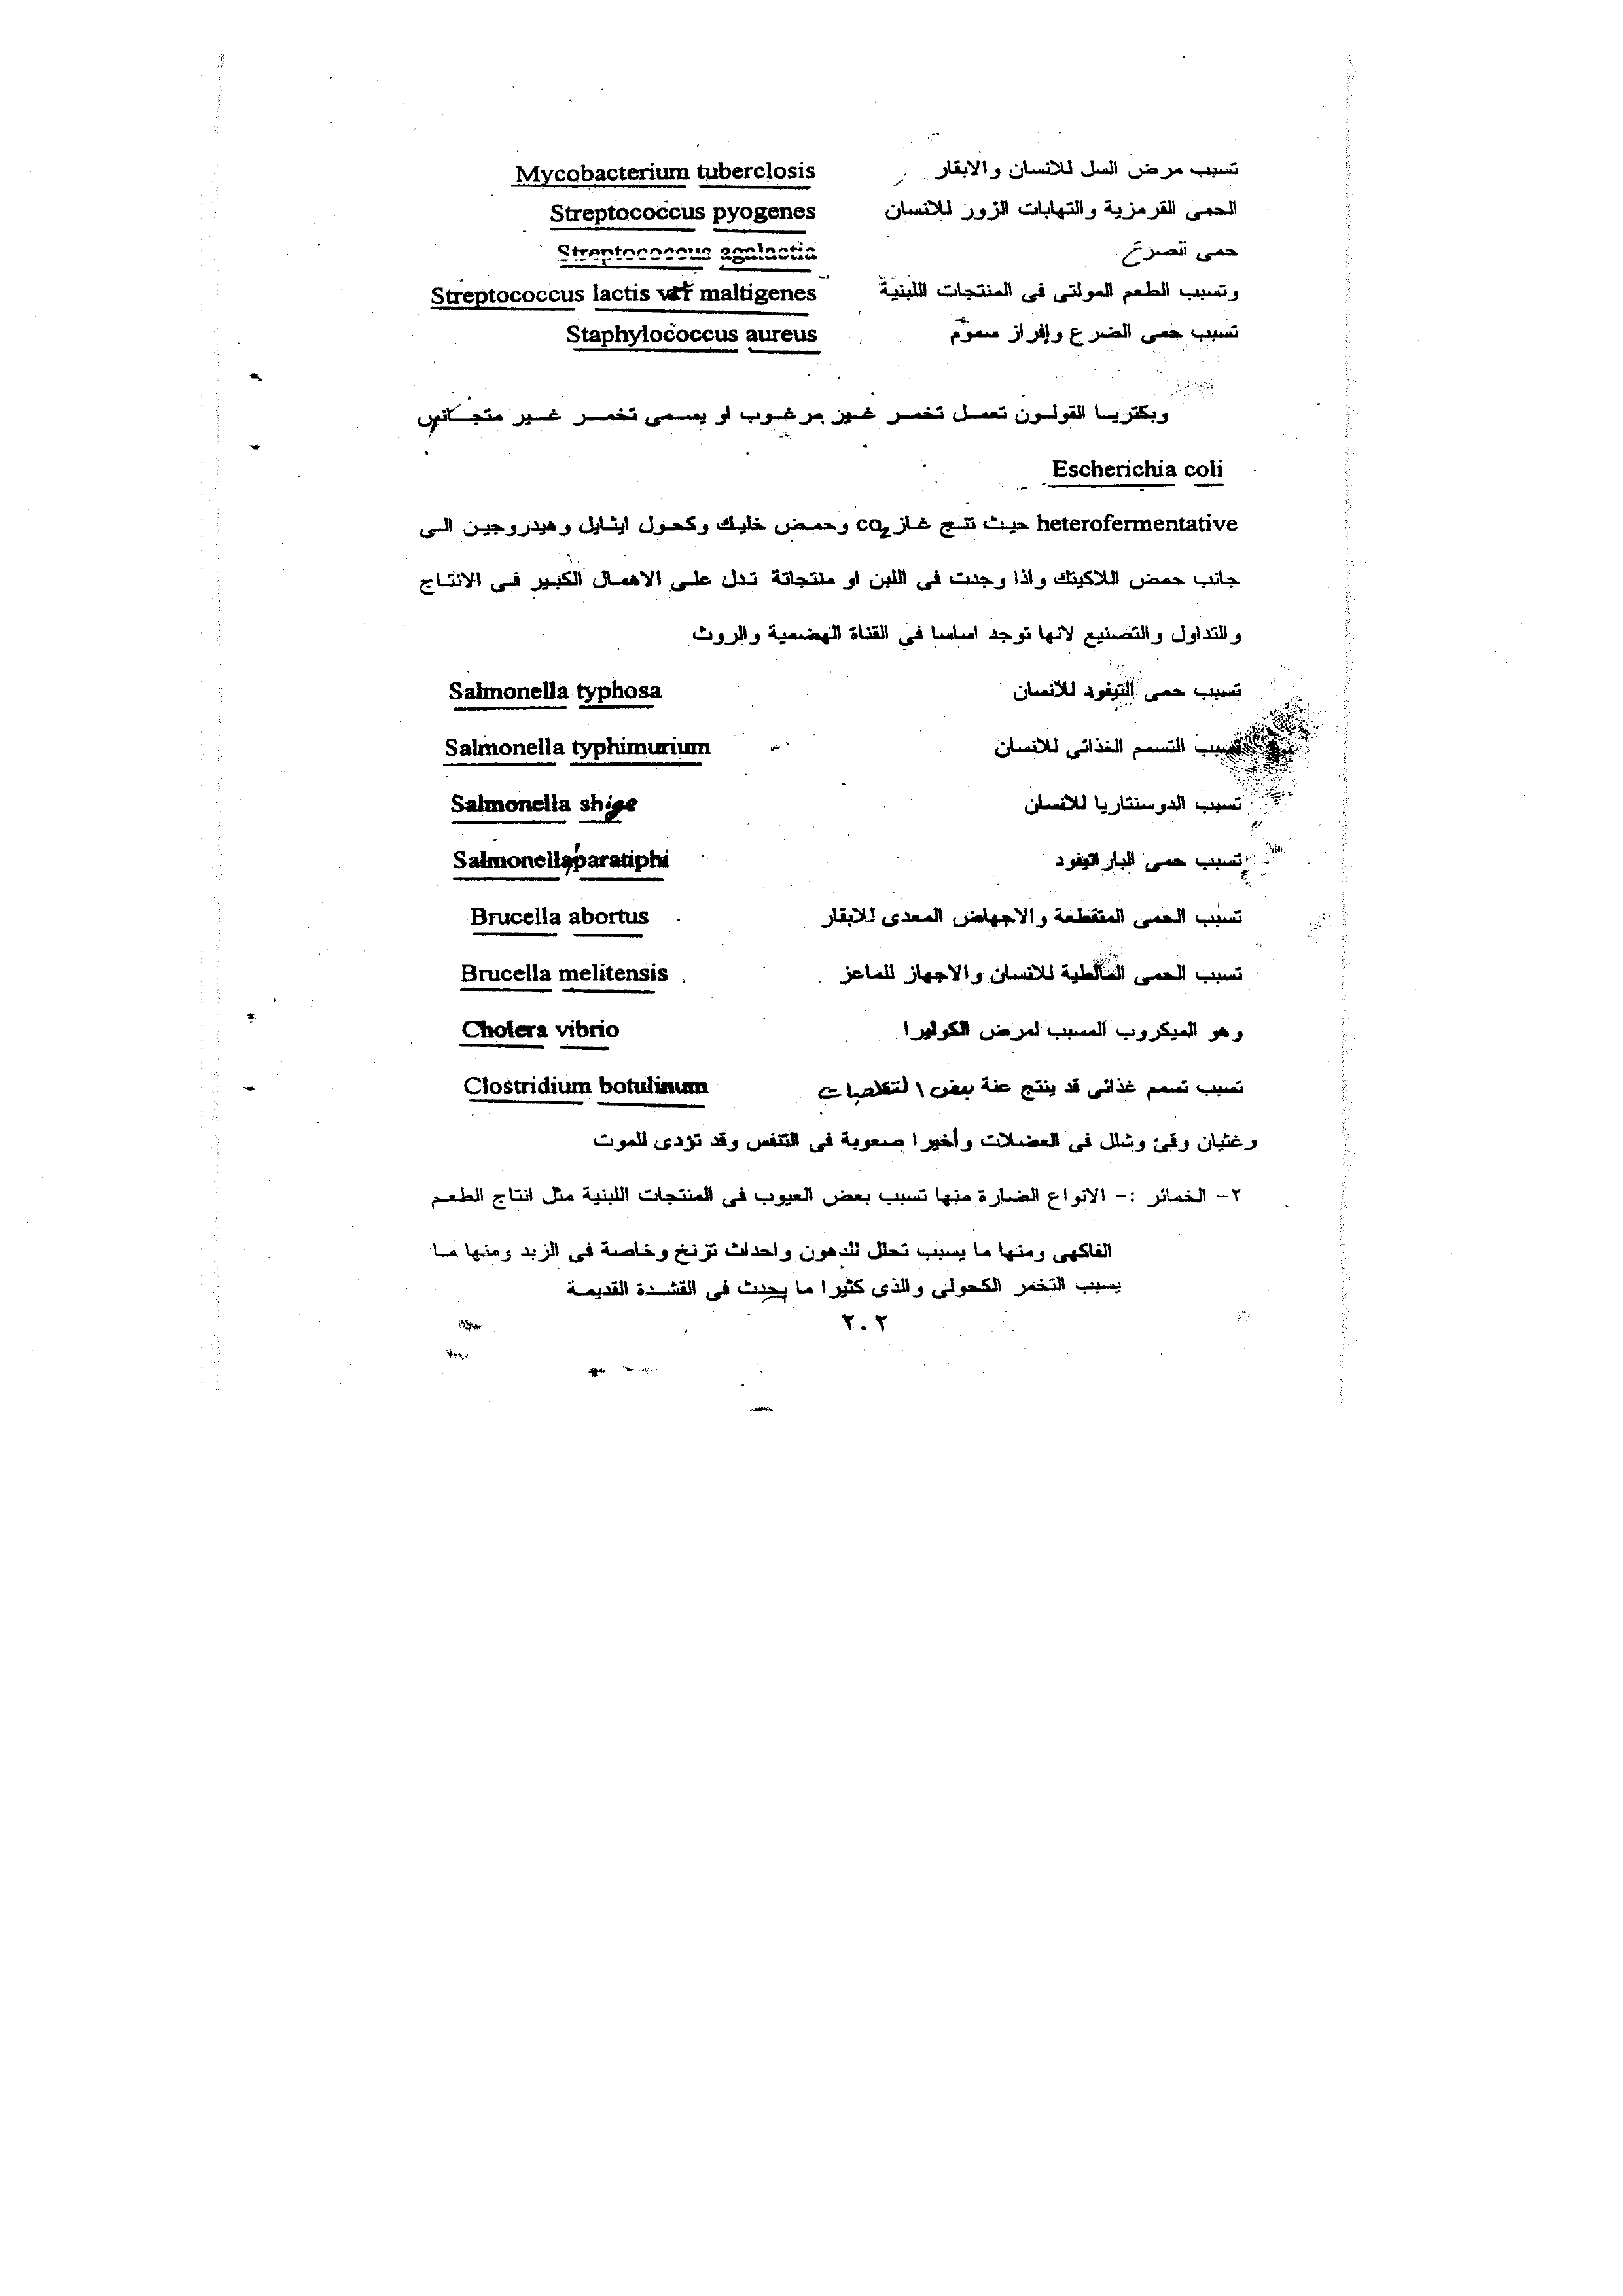 تسبب مرض السل للانسان والابقار Mycobacterium tuberclosis
الحمى القرمزية والتهابات الزور للانسان Streptococcus pyogenes
حمى الضرع Streptococcus agalactia
وتسبب الطعم المولتى فى المنتجات اللبنية Streptococcus lactis var maltigenes
تسبب حمى الضرع وإفراز سموم Staphylococcus aureus
وبكتريا القولون تعمل تخمر غير مرغوب او يسمى تخمر غير متجانس
Escherichia coli
heterofermentative حيث تنتج غاز co2 وحمض خليك وكحول ايثايل وهيدروجين الى
جانب حمض اللاكيتك واذا وجدت فى اللبن او منتجاتة تدل على الاهمال الكبير فى الانتاج
والتداول والتصنيع لانها توجد اساسا فى القناة الهضمية والروث
تسبب حمى التيفود للانسان Salmonella typhosa
تسبب التسمم الغذائى للانسان Salmonella typhimurium
تسبب الدوسنتاريا للانسان Salmonella shige
تسبب حمى الباراتيفود Salmonella paratiphi
تسبب الحمى المتقطعة والاجهاض المعدى للابقار Brucella abortus
تسبب الحمى المالطية للانسان والاجهاز للماعز Brucella melitensis
وهو الميكروب المسبب لمرض الكوليرا Cholera vibrio
تسبب تسمم غذائى قد ينتج عنة بعض التقلصات Clostridium botulinum
وغثيان وقئ وشلل فى العضلات وأخيرا صعوبة فى التنفس وقد تؤدى للموت
٢- الخمائر :- الانواع الضارة منها تسبب بعض العيوب فى المنتجات اللبنية مثل انتاج الطعم
الفاكهى ومنها ما يسبب تحلل للدهون واحداث تزنخ وخاصة فى الزبد ومنها ما
يسبب التخمر الكحولى والذى كثيرا ما يحدث فى القشدة القديمة
٢٠٢